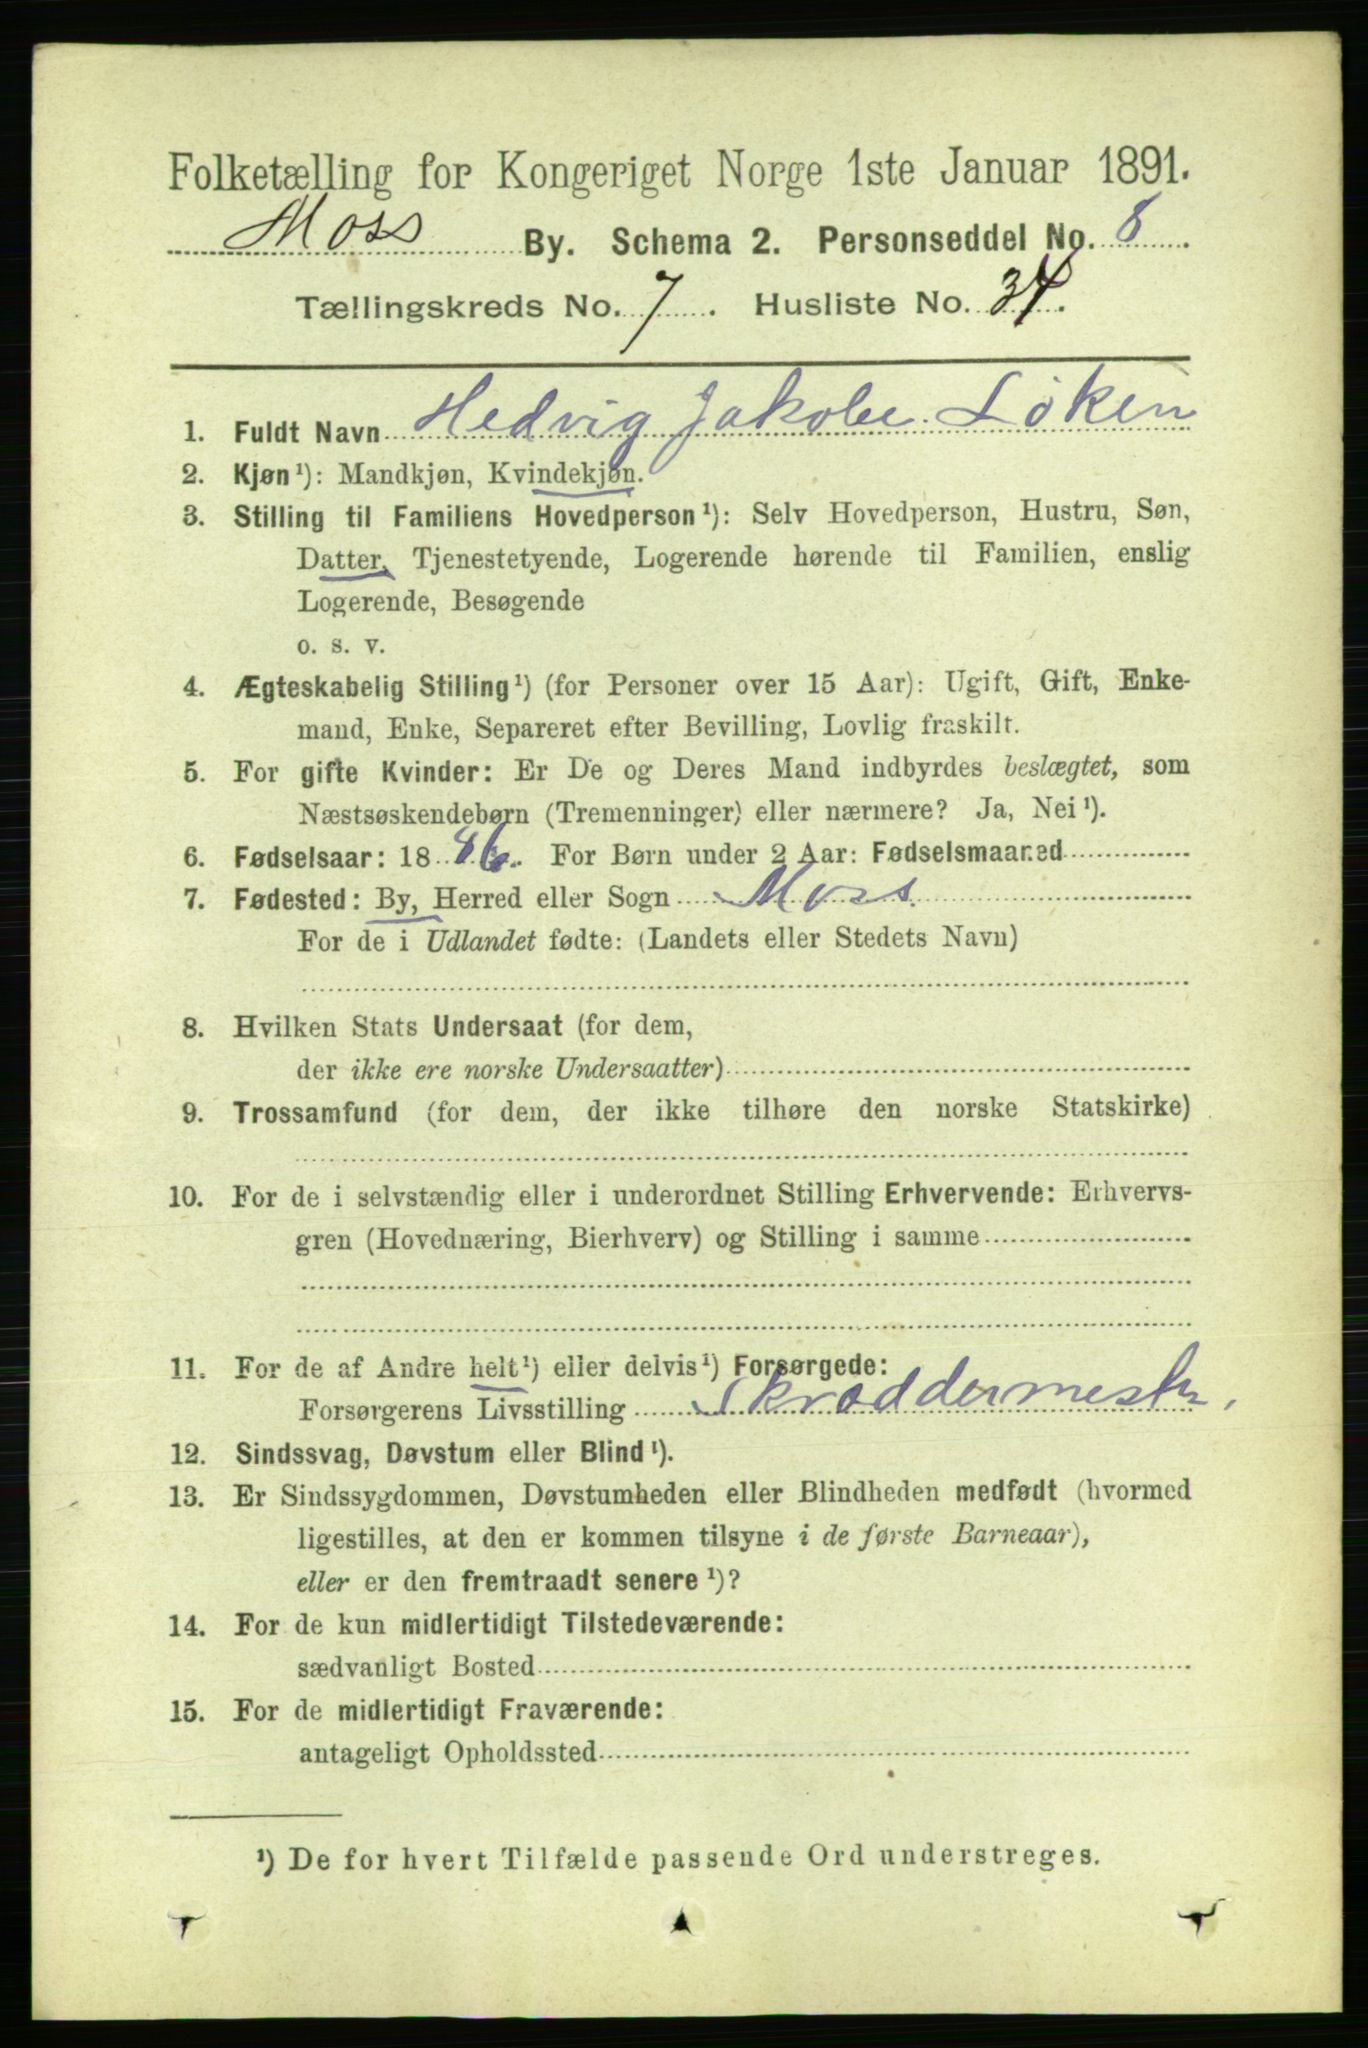 Folketælling for Kongeriget Norge 1ste Januar 1891.
Moss By. Schema 2. Personseddel No. 8.
Tællingskreds No. 7. Husliste No. 34.
1. Fuldt Navn Hedvig Jakobe Løken
2. Kjøn¹): Mandkjøn, Kvindekjøn.
3. Stilling til Familiens Hovedperson¹): Selv Hovedperson, Hustru, Søn,
Datter, Tjenestetyende, Logerende hørende til Familien, enslig
Logerende, Besøgende
o. s. v.
4. Ægteskabelig Stilling¹) (for Personer over 15 Aar): Ugift, Gift, Enke-
mand, Enke, Separeret efter Bevilling, Lovlig fraskilt.
5. For gifte Kvinder: Er De og Deres Mand indbyrdes beslægtet, som
Næstsøskendebørn (Tremenninger) eller nærmere? Ja, Nei¹).
6. Fødselsaar: 1886. For Børn under 2 Aar: Fødselsmaaned
7. Fødested: By, Herred eller Sogn Moss.
For de i Udlandet fødte: (Landets eller Stedets Navn)
8. Hvilken Stats Undersaat (for dem,
der ikke ere norske Undersaatter)
9. Trossamfund (for dem, der ikke tilhøre den norske Statskirke)
10. For de i selvstændig eller i underordnet Stilling Erhvervende: Erhvervs-
gren (Hovednæring, Bierhverv) og Stilling i samme
11. For de af Andre helt¹) eller delvis¹) Forsørgede:
Forsørgerens Livsstilling Skræddermester.
12. Sindssvag, Døvstum eller Blind¹).
13. Er Sindssygdommen, Døvstumheden eller Blindheden medfødt (hvormed
ligestilles, at den er kommen tilsyne i de første Barneaar),
eller er den fremtraadt senere¹)?
14. For de kun midlertidigt Tilstedeværende:
sædvanligt Bosted
15. For de midlertidigt Fraværende:
antageligt Opholdssted
¹) De for hvert Tilfælde passende Ord understreges.